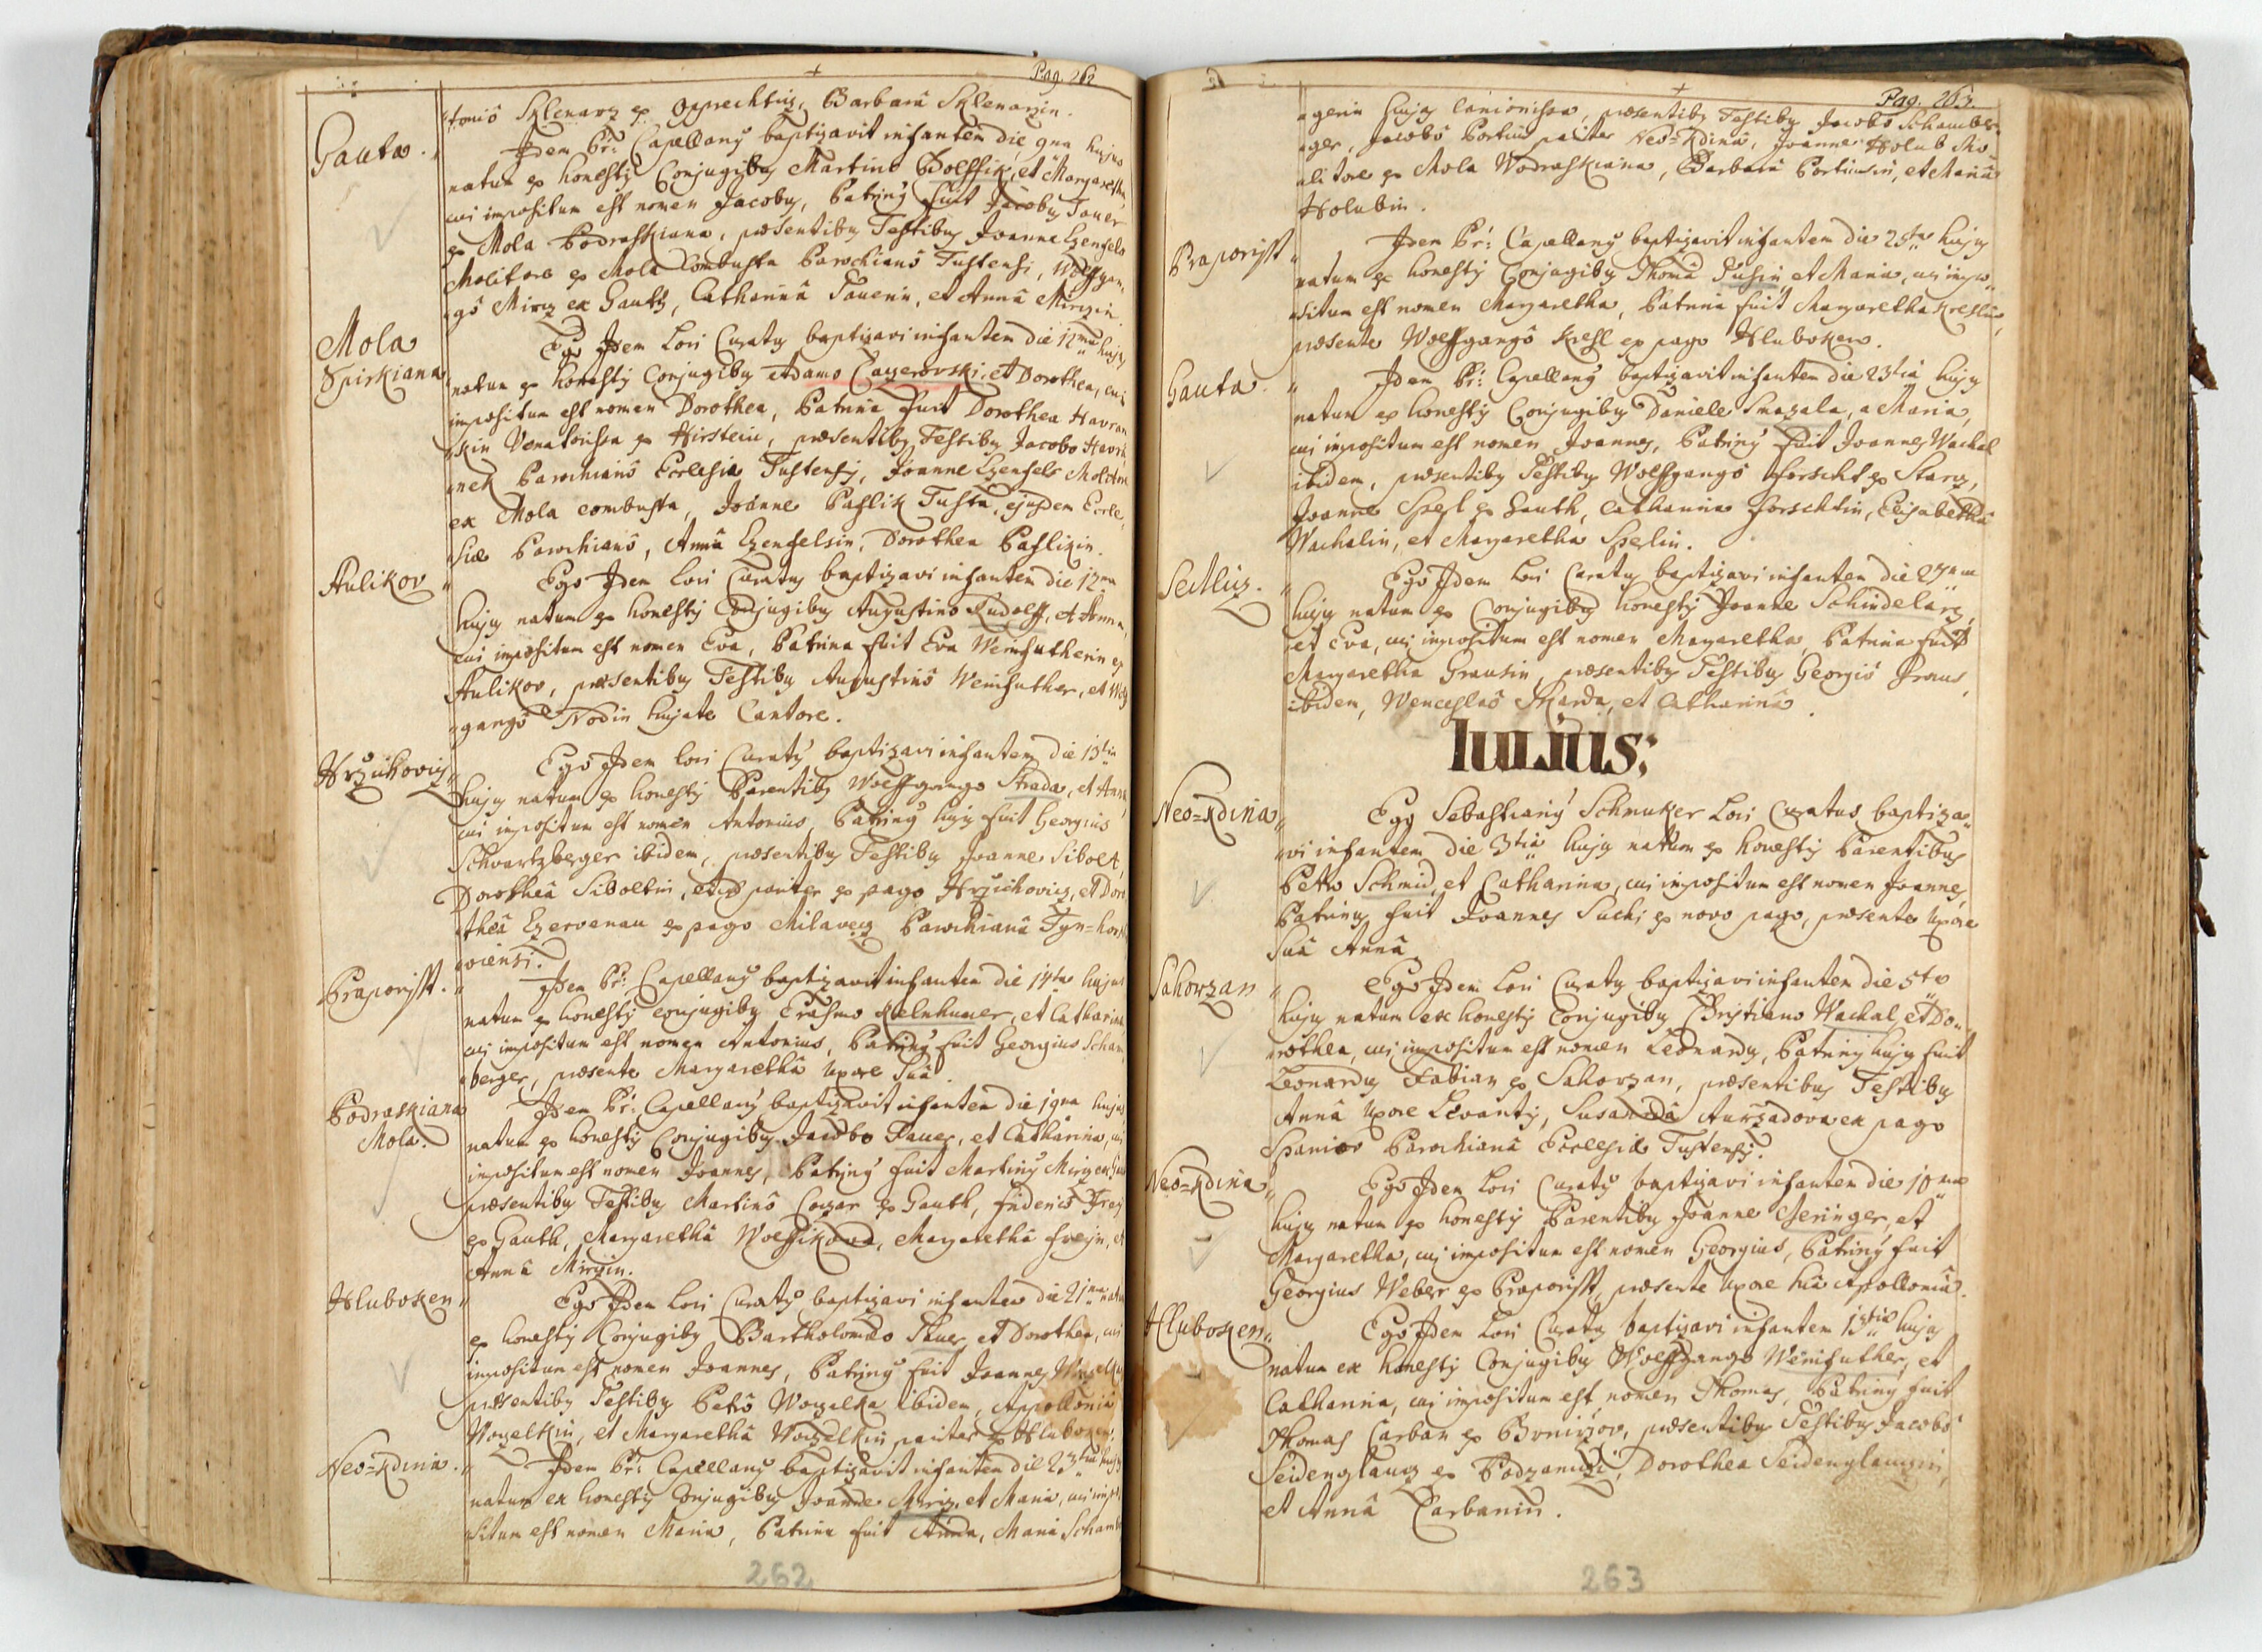 Pag. 262
Sklenarz ex Opprechtiz, Barbarâ Sklenarzin.
Gauta.
Idem Pr: Capellanus baptizavit infantem die 9na hujus
natum ex honestis Conjugibus Martino Wolffik, et Margaretha,
cui impositum est nomen Jacobus, Patrinus fuit Jacobus Tauer
ex Mola Podraskiana, præsentibus Testibus Joanne
Molitore ex Mola Combusta Parochianô Tustensi, Wolffgan-
gô Mirez ex Gauth, Catharinâ Tauerin, et Annâ Mirezin.
Mola
Spirkiana
Ego Idem Loci Curatus baptizavi infantem die 12ma hujus
natum ex honestis Conjugibus Adamo Cayerovski, et Dorothea, cui
impositum est nomen Dorothea, Patrina fuit Dorothea Havran
skin Venatorissa ex Hirstein, præsentibus Testibus Jacobo
nek Parochianô Ecclesiæ Tustensis, Joanne Molitore
ex Mola combusta, Joanne Paslik Tusta, ejusdem Eccle-
siæ Parochianô, Annâ Dorothea Paslikin.
Aulikov
Ego Idem Loci Curatus baptizavi infantem die 12ma
hujus natum ex honestis Conjugibus Augustino Rudolff, et Anna,
cui impositum est nomen Eva, Patrina fuit Eva Weinfutherin ex
Aulikov, præsentibus Testibus Augustinô Weinfuther, et Wolff
gangô Nodin hujate Cantore.
Hrzichovicz
Ego Idem Loci Curatus baptizavi infantem die 13tia
hujus natum ex honestis Parentibus Wolffgango Strada, et Anna,
cui impositum est nomen Antonius, Patrinus hujus fuit Georgius
Schwartzberger ibidem, præsentibus Testibus Joanne Sibolt,
Dorotheâ Siboltin, pariter ex pago Hrzichovicz, et Doro
theâ Czervenau ex pago Milavecz Parochianâ
viensi.
Praporisst.
Idem Pr: Capellanus baptizavit infantem die 14ta hujus
natum ex honestis conjugibus Erasmo Kelnhuner, et Catharina
cui impositum est nomen Antonius, Patrinus fuit Georgius Scham
berger, præsente Margarethâ Uxore Suâ.
Podraskiana
Mola.
Idem Pr: Capellanus baptizavit infantem die 19na hujus
natum ex honestis Conjugibus Jacobo Tauer, et Catharina, cui
impositum est nomen Joannes, Patrinus fuit Martinus Mirez ex
præsentibus Testibus Martinô ex Gauth,
ex Gauth, Margarethâ Wolffikova, Margarethâ
Annâ Mirezin.
Hluboken
Ego Idem Loci Curatus baptizavi infantem die 21ma natum
ex honestis Conjugibus Bartholomæo Tauer, et Dorothea, cui
impositum est nomen Joannes, Patrinus fuit Joannes
præsentibus Testibus Petrô Woczelka ibidem, Appolloniâ
Woczelkin, et Margarethâ Woczelkin pariter ex Hluboken.
Neo=Kdina.
Idem Pr: Capellanus baptizavit infantem die 23tia hujus
natum ex honestis Conjugibus Joanne Mirez, et Maria, cui impo
situm est nomen Maria, Patrina fuit Maria Schamb
262
Pag. 263.
agerin hujus præsentibus Testibus Jacobô Schamber-
ger, Jacobô Portius pariter Neo=Kdinâ, Joanne Holub Mo-
litore ex Mola Wodraskiana, Barbarâ Portiusin, et Mariâ
Holubin.
Praporisst
Idem Pr: Capellanus baptizavit infantem die 25ta hujus
natum ex honestis Conjugibus Thoma et Maria, cui impo-
situm est nomen Margaretha, Patrina fuit Margaretha Kreslin,
præsente Wolffgangô Kresl ex pago Hluboken.
Gauta.
Idem Pr: Capellanus baptizavit infantem die 23tia hujus
natum ex honestis Conjugibus Daniele Smazala, a Maria,
cui impositum est nomen Joannes, Patrinus fuit Joannes Wachal
ibidem, præsentibus Testibus Wolffgangô Forscht ex Starez,
Joanne Sperl ex Gauth, Catharina Forschtin, Elisabetha
Wachalin, et Margaretha Sperlin.
Sedliz.
Ego Idem Loci Curatus baptizavi infantem die
hujus natum ex Conjugibus honestis Joanne Schindelarz,
et Eva, cui impositum est nomen Margaretha, Patrina fuit
Margaretha Grausin, præsentibus Testibus Georgiô Graus,
ibidem, Wenceslaô Skarda, et Catharinâ.
IULIUS:
Neo=Kdina
Ego Sebastianus Schmuker Loci Curatus baptiza-
vi infantem die 3tia hujus natum ex honestis Parentibus
Petro Schmid, et Catharina, cui impositum est nomen Joannes,
Patrinus fuit Joannes Suchi ex novo pago, præsente Uxore
Suâ Annâ.
Sahorzan
Ego Idem Loci Curatus baptizavi infantem die 5ta
hujus natum ex honestis Conjugibus Christiano Wachal, et Do-
rothea, cui impositum est nomen Leonardus, Patrinus hujus fuit
Leonardus Fabian ex Sahorzan, præsentibus Testibus
Annâ Uxore Levantis, Susannâ Aurzadova ex pago
Spaniov Parochianâ Ecclesiæ Tustensis.
Neo=Kdina
Ego Idem Loci Curatus baptizavi infantem die 10ma
hujus natum ex honestis Parentibus Joanne Geringer, et
Margaretha, cui impositum est nomen Georgius, Patrinus fuit
Georgius Weber ex Praporisst, præsente Uxore suâ Apolloniâ.
Hluboken
Ego Idem Loci Curatus baptizavi infantem 13tia hujus
natum ex honestis Conjugibus Wolffgango Weinfuther, et
Catharina, cui impositum est nomen Thomas, Patrinus fuit
Thomas Carban ex Brnirzov, præsentibus Testibus Jacobô
Seidenglancz ex Podzamczi, Dorothea Seidenglanczin,
et Annâ Carbanin.
263